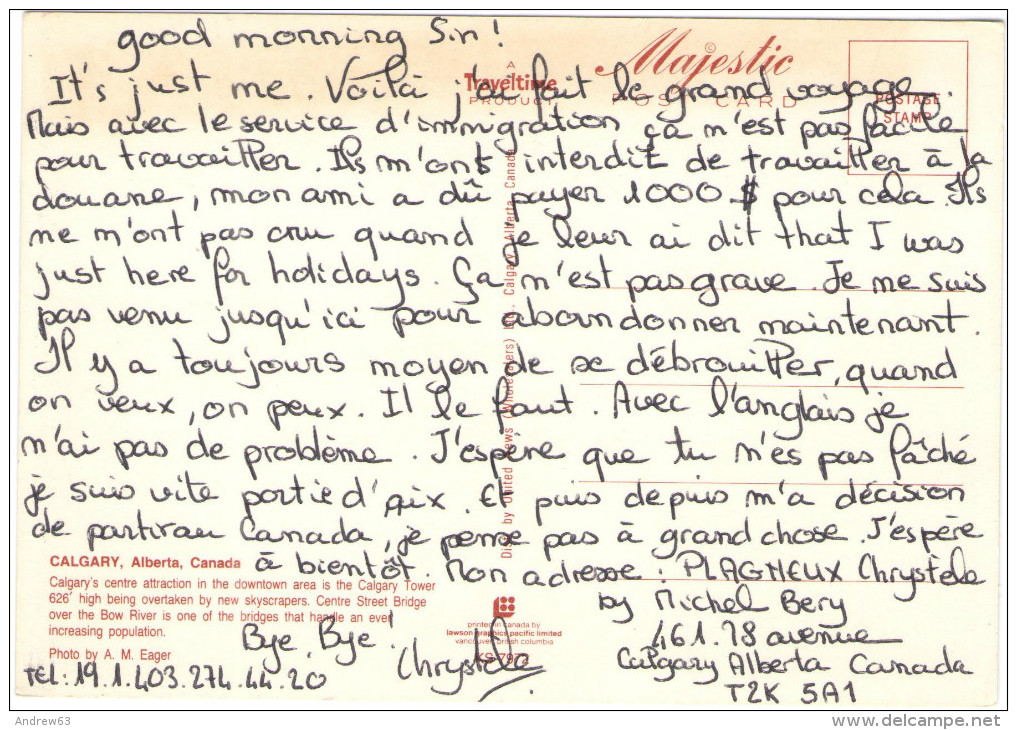 good morning Sir!
It's just me. Voilà j'ai fait le grand voyage.
Mais avec le service d'immigration ça m'est pas facile
pour travailler. Ils m'ont interdit de travailler à la
douane, mon ami a dû payer 1000 $ pour cela. Ils
ne m'ont pas cru quand je leur ai dit that I was
just here for holidays. Ça n'est pas grave. Je me suis
pas venu jusqu'ici pour abandonner maintenant.
Il y a toujours moyen de se débrouiller, quand
on veux, on peux. Il le faut. Avec l'anglais je
n'ai pas de problème. J'espère que tu n'es pas fâché
je suis vite partie d'Aix. Et puis depuis m'a décision
de partir au Canada, je pense pas à grand chose. J'espère
à bientôt. Mon adresse: PLAGNEUX Chrystele
by Michel Bery
461.78 avenue
Calgary Alberta Canada
T2K 5A1
Bye, Bye!
Chrystele
TEL: 19.1.403.274.44.20
Majestic
©
POST CARD
A
Traveltime
PRODUCT
POSTAGE
STAMP
Dist. by United News (Wholesalers) Ltd. Calgary, Alberta, Canada
CALGARY, Alberta, Canada
Calgary's centre attraction in the downtown area is the Calgary Tower
626' high being overtaken by new skyscrapers. Centre Street Bridge
over the Bow River is one of the bridges that handle an ever
increasing population.
Photo by A. M. Eager
printed in canada by
lawson graphics pacific limited
vancouver, british columbia
KS-7972
Andrew63
delcampe.net